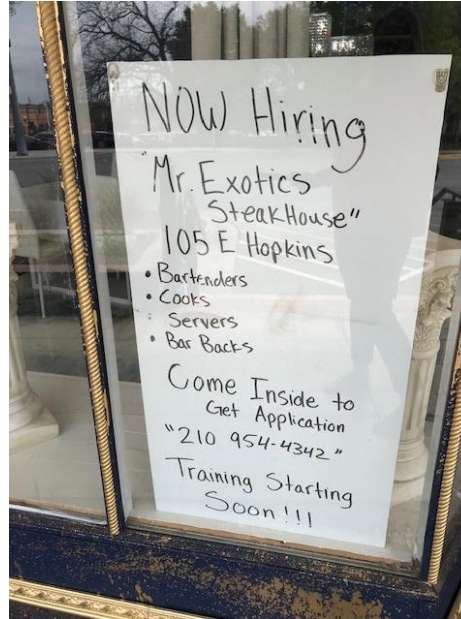 NOW Hiring
"Mr. Exotics
SteakHouse"
105 E Hopkins
• Bartenders
• Cooks
• Servers
• Bar Backs
Come Inside to
Get Application
"210 954-4342"
Training Starting
Soon!!!